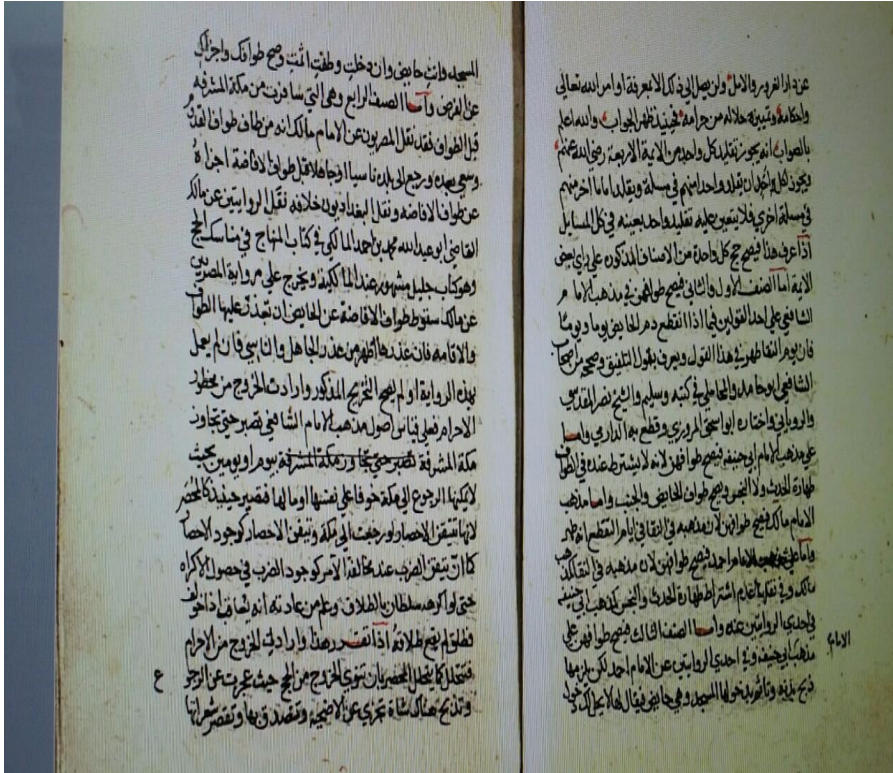 عن دار الغرور والامل ولن يصل الى ذلك الا بمعرفة اوامر الله تعالى
واحكامه وتبيين حلاله من حرامه فحينئذ ظهر الجواب والله اعلم
بالصواب انه يجوز تقليد كل واحد من الايمة الاربعة رضي الله عنهم
ويجوز لكل واحد ان يقلد واحدا منهم في مسئلة ويقلد اماما اخر منهم
في مسئلة اخري فلا يتعين عليه تقليد واحد بعينه في كل المسايل
اذا عرف هذا فيصح حج كل واحدة من الاصناف المذكورة علي راي بعض
الايمة اما الصنف الاول والثاني فيصح طوافهن في مذهب الامام
الشافعي علي احد القولين فيما اذا انقطع دم الحايض يوما ويوما
فان يوم النقا طهر في هذا القول ويعرف بقول التلفيق وصححه من اصحاب
الشافعي ابو حامد والمحاملي في كتبه وسليم والشيخ نصر المقدسي
والروياني واختاره ابو اسحق المروزي وقطع به الدارمي واما
علي مذهب الامام ابي حنيفه فيصح طوافهن لانه لا يشترط عنده في الطواف
طهارة الحدث ولا النجس ويصح طواف الحايض والجنب واما مذهب
الامام مالك فيصح طوافهن لان مذهبه في النقا في ايام التقطع انه طهر
واما علي مذهب الامام احمد فيصح طوافهن لان مذهبه في النقا كمذهب
مالك وفي عدم اشتراط طهارة الحدث والنجس كمذهب ابي حنيفه
في احدي الروايتين عنه واما الصنف الثالث فيصح طوافهن علي
الامام
مذهب ابي حنيفه وفي احدي الروايتين عن الامام احمد لكن يلزمها
ذبح بدنة وتاثم بدخولها المسجد وهي حايض فيقال لها لا يحل لك دخول
المسجد وانت حايض وان دخلت وطفت اثمت وصح طوافك واجزاك
عن الفرض واما الصنف الرابع وهي التي سافرت من مكة المشرفة
قبل الطواف فقد نقل المصريون عن الامام مالك انه من طاف طواف القدوم
وسعي بعده ورجع الى بلده ناسيا او جاهلا قبل طواف الافاضة اجزاه
عن طواف الافاضه ونقل البغداديون خلافه نقل الروايتين عن مالك
القاضي ابو عبدالله محمد بن احمد المالكي في كتاب المنهاج في مناسك الحج
وهو كتاب جليل مشهور عند المالكية ويخرج علي رواية المصريين
عن مالك سقوط طواف الافاضة عن الحايض ان تعذر عليها الطواف
والاقامه فان عذرها اظهر من عذر الجاهل والناسي فان لم يعمل
بهذه الرواية او لم يصح التخريج المذكور وارادت الخروج من محظور
الاحرام فعلي قياس اصول مذهب الامام الشافعي تصبر حتي تجاوز
مكة المشرفة تصبر حتي تجاوز مكة المشرفة بيوم او يومين بحيث
لا يمكنها الرجوع الى مكة خوفا علي نفسها او مالها فتصير حينئذ كالمحصر
لانها تتيقن الاحصار لو رجعت الي مكة وتيقن الاحصار كوجود الاحصار
كما ان تيقن الضرب عند مخالفة الامر كوجود الضرب في حصول الاكراه
حتي لو اكرهه سلطان بالطلاق وعلم من عادته انه يعاقب اذا خولف
فطلق لم يقع طلاقه اذا تقرر هذا وارادت الخروج من الاحرام
فتتحلل كما يتحلل المحصر بان تنوي الخروج من الحج حيث عجزت عن الرجوع
وتذبح هناك شاة تجزي عن الاضحية وتتصدق بها وتقصر شعراتها